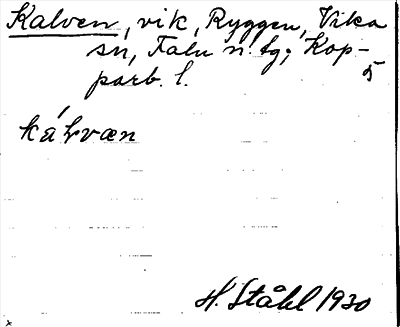 Kalven, vik, Ryggen, Vika
sn, Falu n. tg; Kop-
parb. l. 5
káḷvæn
H. Ståhl 1930